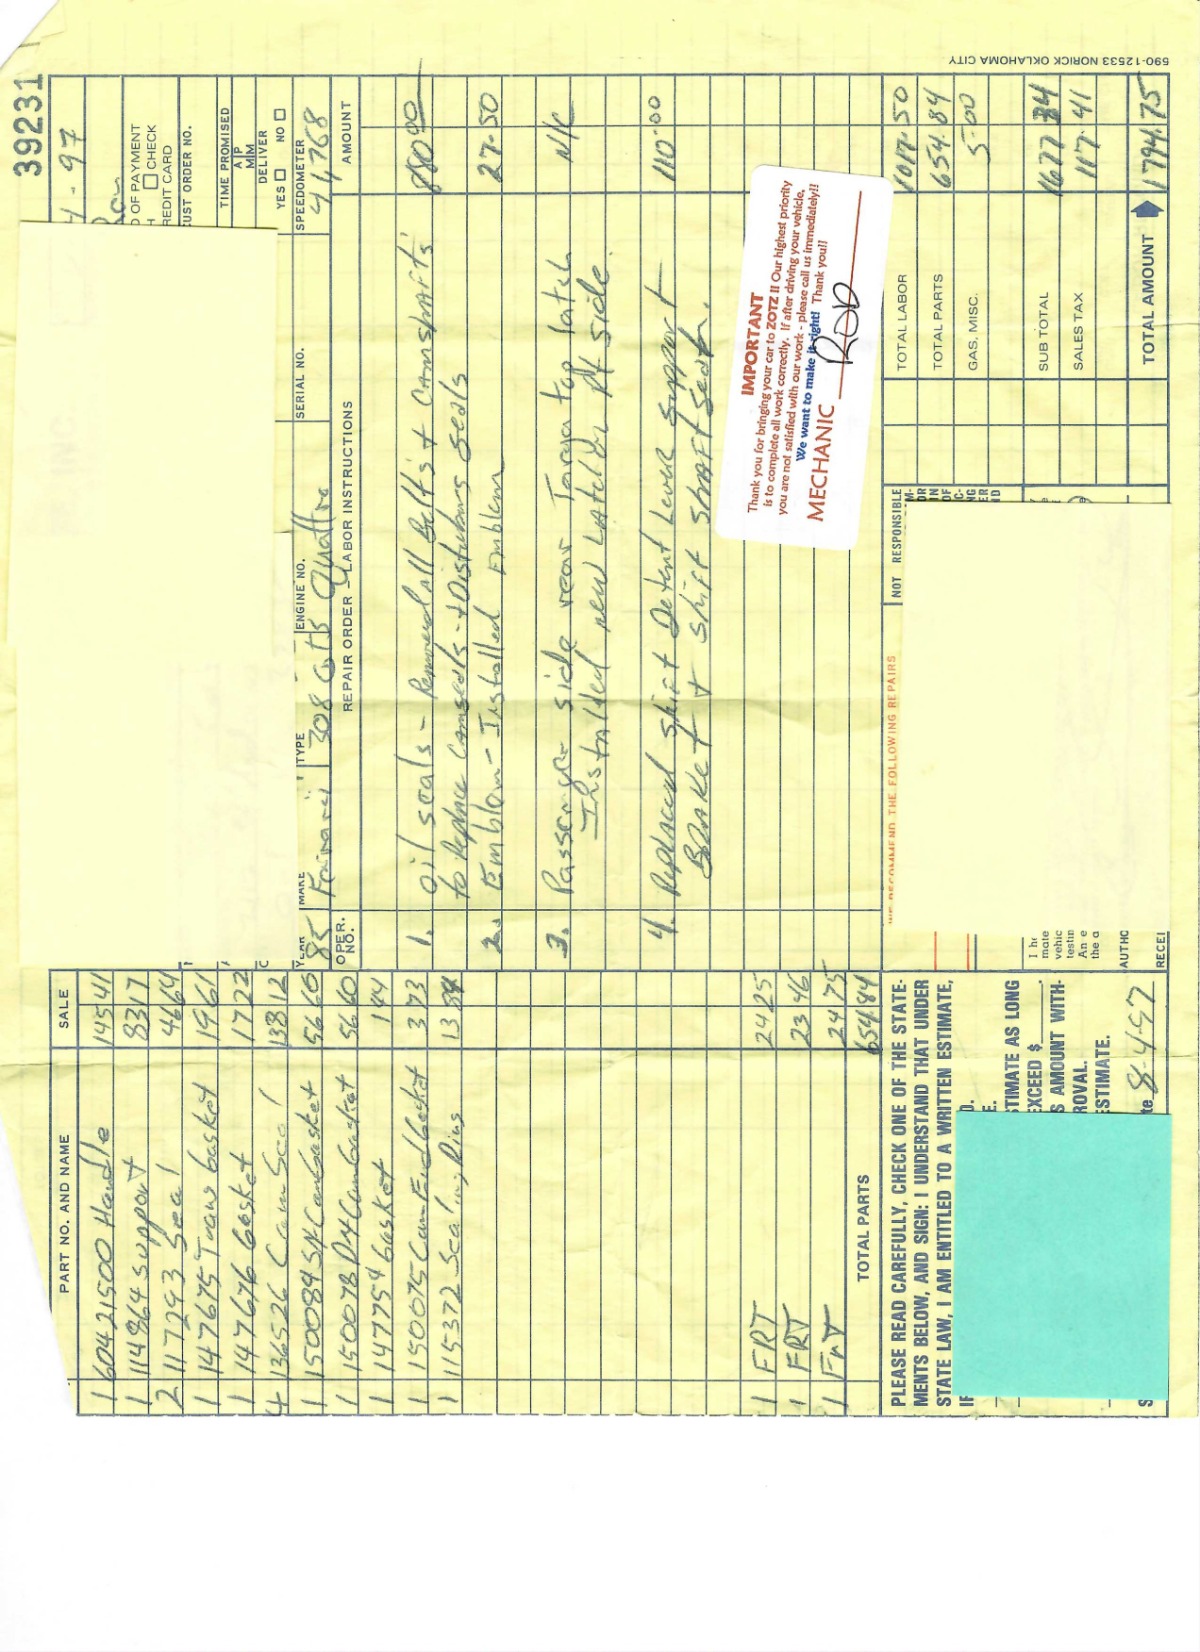 39231
PART NO. AND NAME SALE
1 60421500 Handle 145 41
1 114864 support 83 17
2 117293 Seal 46 64
1 147675 Trans Gasket 19 61
1 147676 Gasket 17 22
4 136526 Cam Seal 138 12
1 150084 Gasket 56 60
1 150078 56 60
1 147754 Gasket 1 44
1 150075 Cam End Gasket 3 73
1 115372 Sealing Ring 13 84
1 FRT 24 25
1 FRT 23 46
1 24 75
TOTAL PARTS 654.84
4-97
Ron
OF PAYMENT
CHECK
REDIT CARD
UST ORDER NO.
TIME PROMISED
A P
M M
DELIVER
YES NO
MAKE TYPE ENGINE NO. SERIAL NO. SPEEDOMETER
85 Ferrari 308 GTS Quattro 44768
OPER. NO. REPAIR ORDER - LABOR INSTRUCTIONS AMOUNT
1. Oil seals - Removed all Belts + Camshafts 880 00
to Replace Camseals + Disturbing seals
2. Emblem - Installed Emblem 27.50
3. Passenger side rear Targa top latch N/C
Installed new Latch Rt side.
4. Replaced shift Detent Lever support 110.00
Braket + shift shaft seal.
IMPORTANT
Thank you for bringing your car to ZOTZ !! Our highest priority
is to complete all work correctly. If after driving your vehicle,
you are not satisfied with our work - please call us immediately!!
We want to make it right! Thank you!!
MECHANIC ROD
WE RECOMMEND THE FOLLOWING REPAIRS
NOT RESPONSIBLE
TOTAL LABOR 1017.50
TOTAL PARTS 654.84
GAS. MISC. 5.00
SUB TOTAL 1677 34
SALES TAX 117.41
TOTAL AMOUNT 1794.75
PLEASE READ CAREFULLY, CHECK ONE OF THE STATE-
MENTS BELOW, AND SIGN: I UNDERSTAND THAT UNDER
STATE LAW, I AM ENTITLED TO A WRITTEN ESTIMATE,
IF
TIMATE AS LONG
EXCEED $
S AMOUNT WITH-
ROVAL.
ESTIMATE.
te 8-4-97
I he
mate
vehic
testin
An e
the a
AUTHO
RECEI
590-12533 NORICK OKLAHOMA CITY